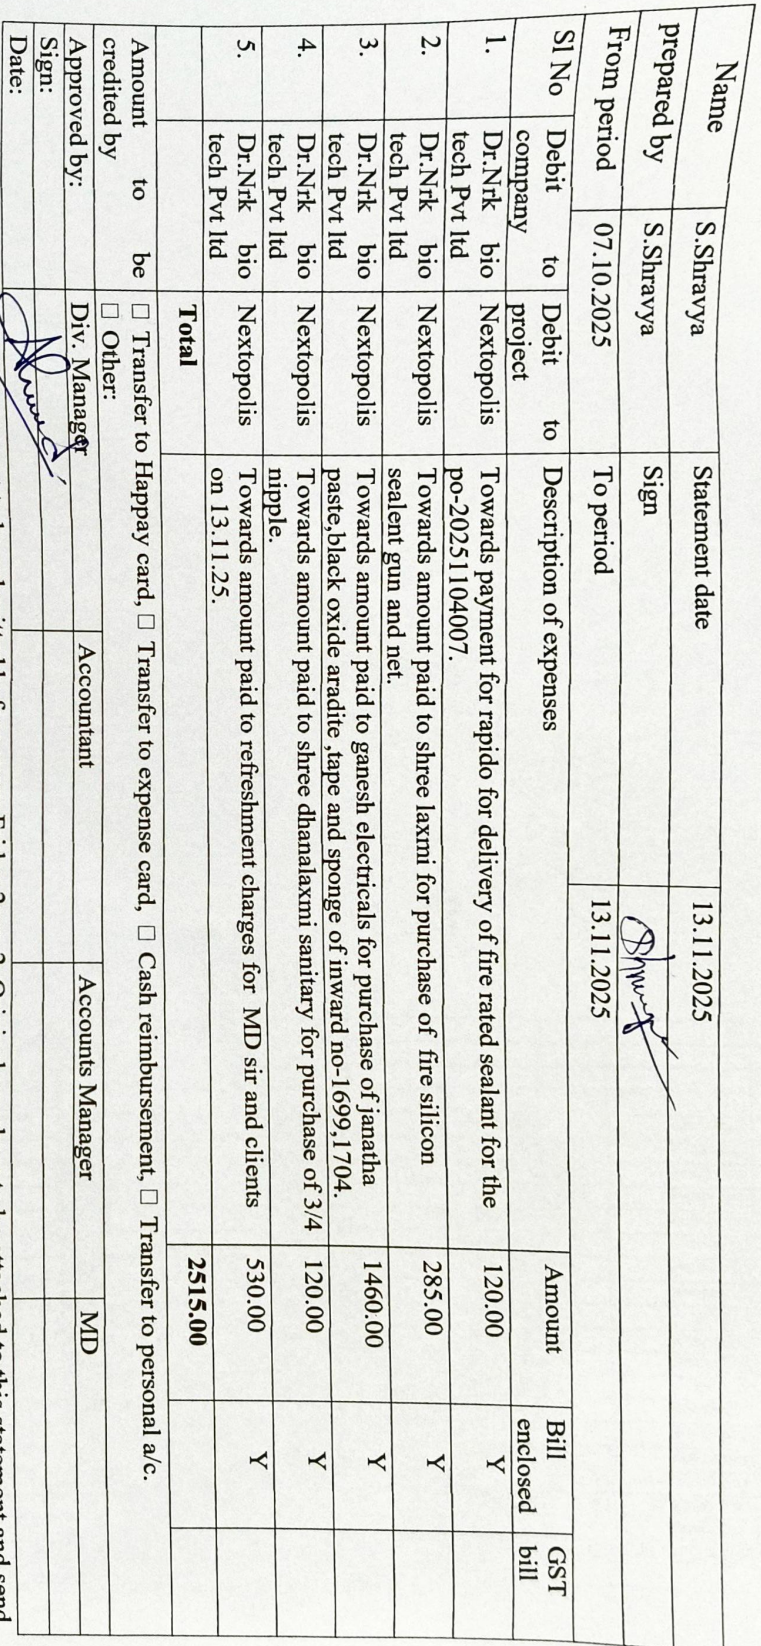 Name S.Shravya Statement date 13.11.2025
prepared by S.Shravya Sign
From period 07.10.2025 To period 13.11.2025
Sl No Debit to company Debit to project Description of expenses Amount Bill enclosed GST bill
1. Dr.Nrk bio tech Pvt ltd Nextopolis Towards payment for rapido for delivery of fire rated sealant for the po-20251104007. 120.00 Y
2. Dr.Nrk bio tech Pvt ltd Nextopolis Towards amount paid to shree laxmi for purchase of fire silicon sealent gun and net. 285.00 Y
3. Dr.Nrk bio tech Pvt ltd Nextopolis Towards amount paid to ganesh electricals for purchase of janatha paste,black oxide aradite ,tape and sponge of inward no-1699,1704. 1460.00 Y
4. Dr.Nrk bio tech Pvt ltd Nextopolis Towards amount paid to shree dhanalaxmi sanitary for purchase of 3/4 nipple. 120.00 Y
5. Dr.Nrk bio tech Pvt ltd Nextopolis Towards amount paid to refreshment charges for MD sir and clients on 13.11.25. 530.00 Y
Total 2515.00
Amount to be credited by □ Transfer to Happay card, □ Transfer to expense card, □ Cash reimbursement, □ Transfer to personal a/c.
□ Other:
Approved by: Div. Manager Accountant Accounts Manager MD
Sign:
Date:
attached to this statement and send